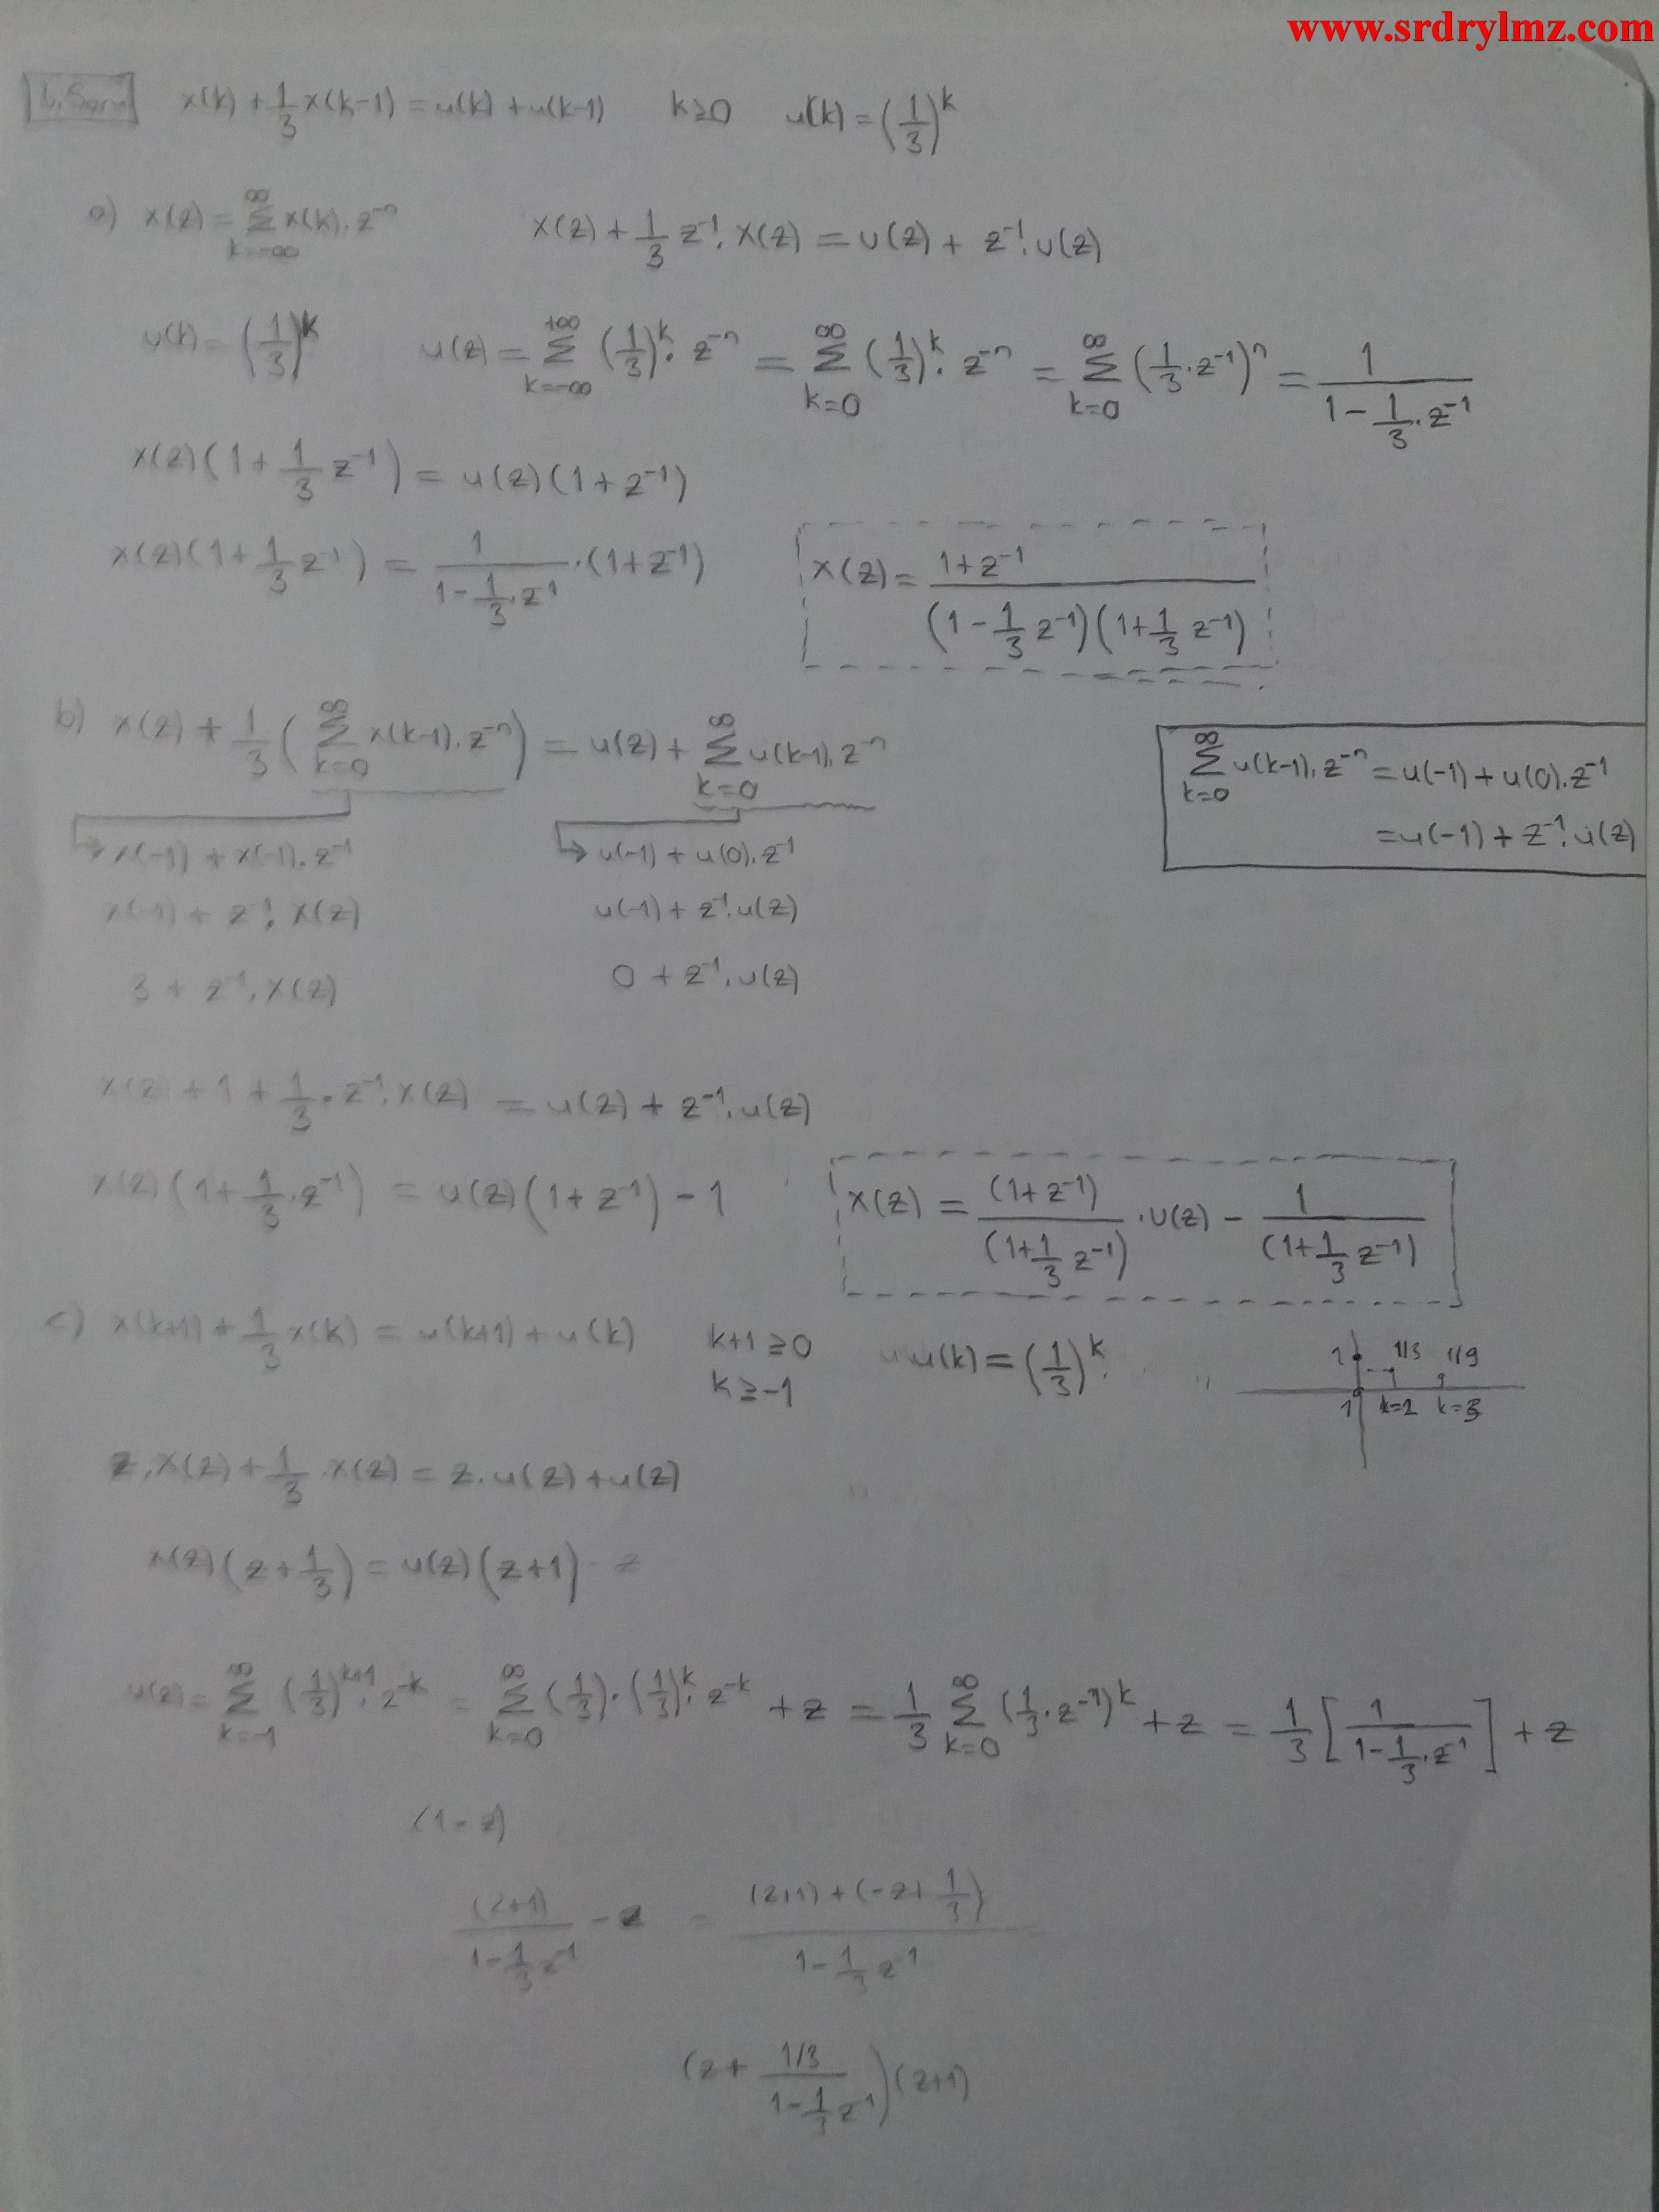 www.srdrylmz.com
x(k) + 1/3 x(k-1) = u(k) + u(k-1)    k≥0    u(k) = (1/3)^k
a) x(z) = ∑_{k=-∞}^{∞} x(k).z^-n    x(z) + 1/3 z^-1.x(z) = u(z) + z^-1.u(z)
u(k) = (1/3)^k    u(z) = ∑_{k=-∞}^{+∞} (1/3)^k.z^-n = ∑_{k=0}^{∞} (1/3)^k.z^-n = ∑_{k=0}^{∞} (1/3.z^-1)^n = 1/(1-1/3.z^-1)
x(z)(1+1/3 z^-1) = u(z)(1+z^-1)
x(z)(1+1/3 z^-1) = 1/(1-1/3.z^-1).(1+z^-1)    x(z) = (1+z^-1)/((1-1/3 z^-1)(1+1/3 z^-1))
b) x(z) + 1/3 (∑_{k=0}^{∞} x(k-1).z^-n) = u(z) + ∑_{k=0}^{∞} u(k-1).z^-n
∑_{k=0}^{∞} u(k-1).z^-n = u(-1) + u(0).z^-1
= u(-1) + z^-1.u(z)
x(-1) + x(-1).z^-1    u(-1) + u(0).z^-1
x(-1) + z^-1.x(z)    u(-1) + z^-1.u(z)
3 + z^-1.x(z)    0 + z^-1.u(z)
x(z) + 1 + 1/3.z^-1.x(z) = u(z) + z^-1.u(z)
x(z)(1+1/3.z^-1) = u(z)(1+z^-1) - 1    x(z) = (1+z^-1)/(1+1/3 z^-1).u(z) - 1/(1+1/3 z^-1)
c) x(k+1) + 1/3 x(k) = u(k+1) + u(k)    k+1≥0    u(k) = (1/3)^k.
k≥-1
1 1/3 1/9
1 k=2 k=3
z.x(z) + 1/3.x(z) = z.u(z) + u(z)
x(z)(z+1/3) = u(z)(z+1) - z
u(z) = ∑_{k=-1}^{∞} (1/3)^{k+1}.z^-k = ∑_{k=0}^{∞} (1/3).(1/3)^k.z^-k + z = 1/3 ∑_{k=0}^{∞} (1/3.z^-1)^k + z = 1/3 [1/(1-1/3.z^-1)] + z
(1-z)
(z+1)/(1-1/3 z^-1) - z = ((z+1)+(-z+1/3))/(1-1/3 z^-1)
(z + (1/3)/(1-1/3 z^-1))(z+1)